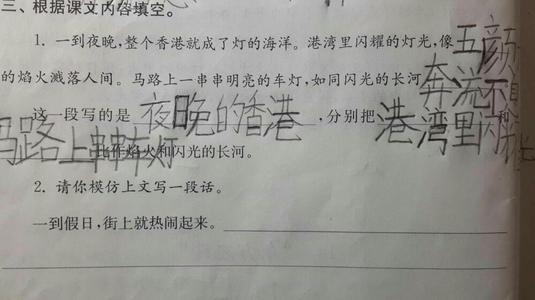 三、根据课文内容填空。
1. 一到夜晚,整个香港就成了灯的海洋。港湾里闪耀的灯光,像五颜
的焰火溅落人间。马路上一串串明亮的车灯,如同闪光的长河奔流不
这一段写的是 夜晚的香港 ,分别把 港湾里闪和
马路上串串车灯 比作焰火和闪光的长河。
2. 请你模仿上文写一段话。
一到假日,街上就热闹起来。